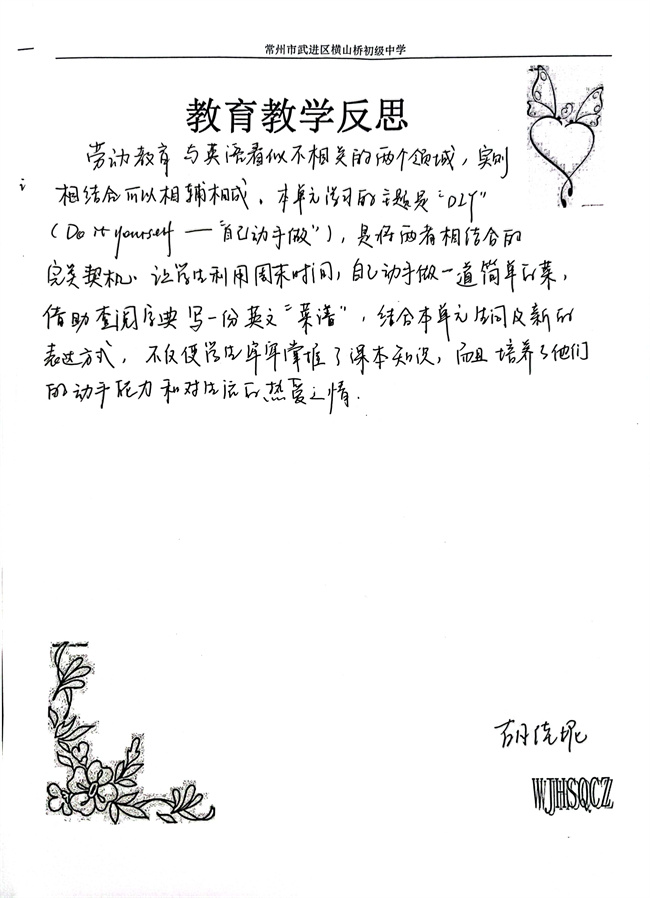 常州市武进区横山桥初级中学
教育教学反思
劳动教育与英语看似不相关的两个领域，实则
相结合可以相辅相成。本单元学习的主题是“DIY”
（Do it yourself —“自己动手做”），是将两者相结合的
完美契机。让学生利用周末时间，自己动手做一道简单的菜，
借助查阅字典写一份英文“菜谱”，结合本单元生词及新的
表达方式，不仅使学生牢牢掌握了课本知识，而且培养了他们
的动手能力和对生活的热爱之情.
胡
WJHSQCZ